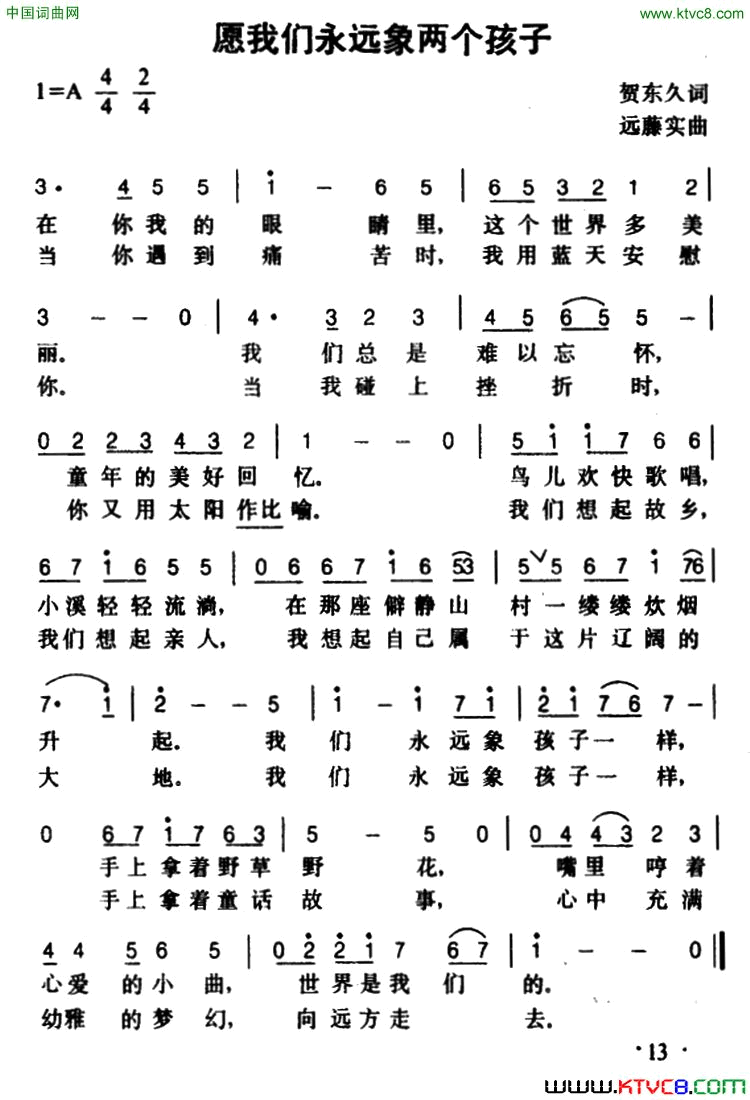 中国词曲网
www.ktvc8.com
愿我们永远象两个孩子
1=A 4/4 2/4
贺东久词
远藤实曲
3· 4 5 5 | i - 6 5 | 6 5 3 2 1 2 |
在 你我的 眼 睛里, 这个世界多美
当 你遇到 痛 苦时, 我用蓝天安慰
3 - - 0 | 4· 3 2 3 | 4 5 6 5 5 - |
丽. 我 们总是 难以忘 怀,
你. 当 我碰上 挫 折 时,
0 2 2 3 4 3 2 | 1 - - 0 | 5 i i 7 6 6 |
童年的美好回 忆. 鸟儿欢快歌唱,
你又用太阳作比 喻. 我们想起故乡,
6 7 i 6 5 5 | 0 6 6 7 i 6 53 | 5 ∨ 5 6 7 i 76 |
小溪轻轻流淌, 在那座僻静山 村一缕缕炊烟
我们想起亲人, 我想起自己属 于这片辽阔的
7· i | 2 - - 5 | i - i 7 i | 2 i 7 6 7 - |
升 起. 我 们 永远象 孩子一 样,
大 地. 我 们 永远象 孩子一 样,
0 6 7 i 7 6 3 | 5 - 5 0 | 0 4 4 3 2 3 |
手上拿着野草 野 花, 嘴里 哼着
手上拿着童话 故 事, 心中 充满
4 4 5 6 5 | 0 2 2 i 7 6 7 | i - - 0 ‖
心爱 的小 曲, 世界是我 们 的.
幼雅 的梦 幻, 向远方走 去.
· 13 ·
www.KTVC8.com